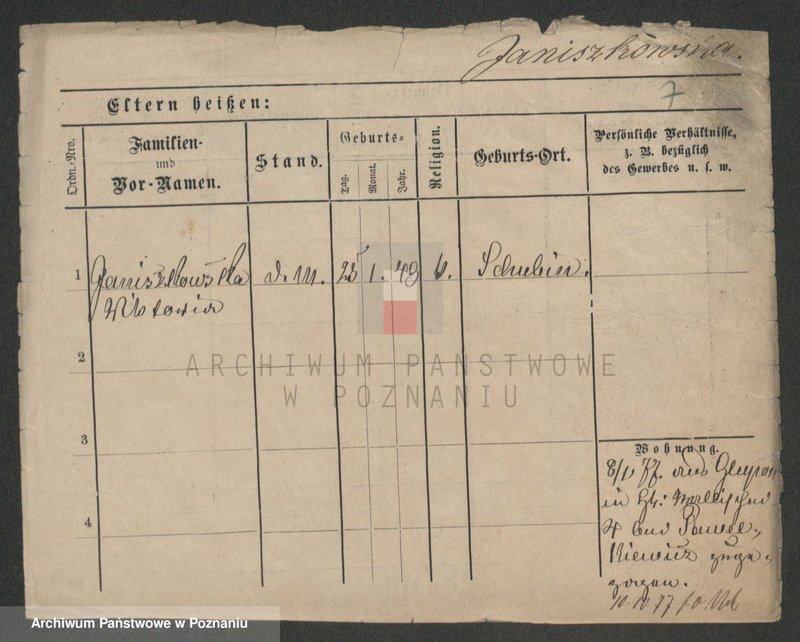 Janiszkowska.
7
Eltern heißen:
Ordn.-Nro.
Familien-
und
Vor-Namen.
Stand.
Geburts-
Tag.
Monat.
Jahr.
Religion.
Geburts-Ort.
Persönliche Verhältnisse,
z. B. bezüglich
des Gewerbes u. s. w.
1
Janiszkowska
Viktoria
d. M.
25
1.
48
k.
Schubin.
2
3
4
Wohnung.
8/1 77. aus
in
4 bei
zuge-
zogen.
77
ARCHIWUM PAŃSTWOWE
W POZNANIU
Archiwum Państwowe w Poznaniu